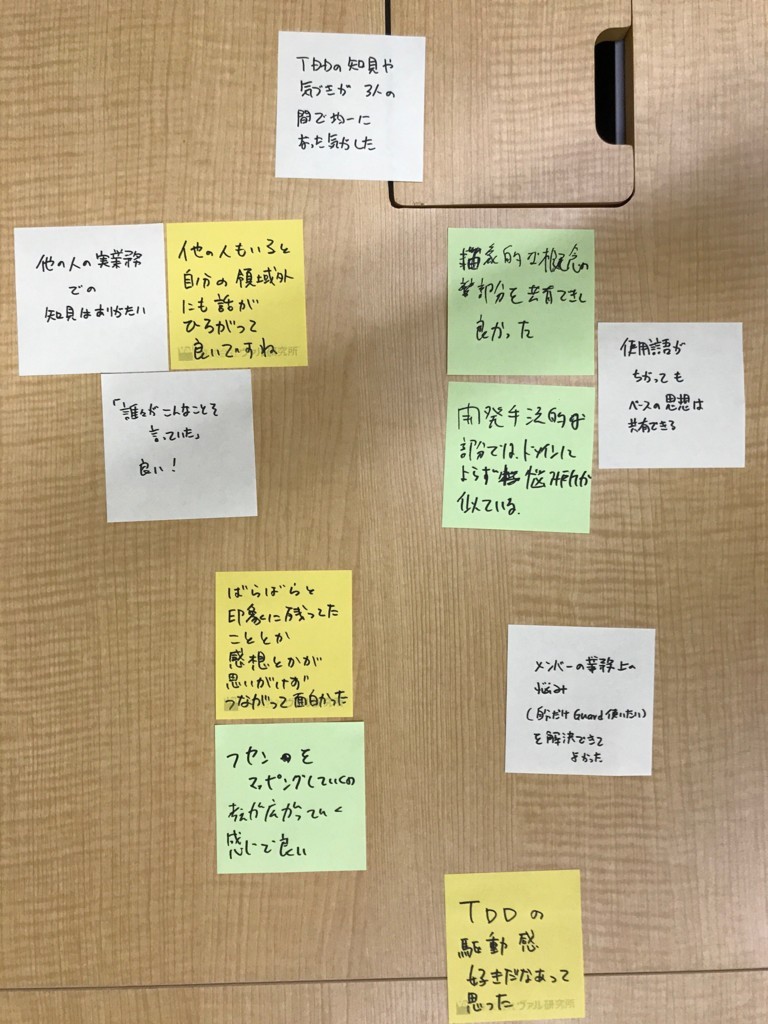 TDDの知見や
気づきが 3人の
間で均一に
なった気がした
他の人の実業務
での
知見はありがたい
他の人もいると
自分の領域外
にも話が
ひろがって
良いですね
ヴァル研究所
「誰々がこんなことを
言っていた」
良い!
的な概念の
部分を共有でき
良かった
使用言語が
ちがっても
ベースの思想は
共有できる
開発手法的な
部分では、ドメインに
よらず 悩み所が
似ている。
ばらばらと
印象に残ってた
こととか
感想とかが
思いがけず
つながって面白かった
メンバーの業務上の
悩み
(自分だけGuard使いたい)
を解決できて
よかった
フセン を
マッピングしていくの
考えが広がっていく
感じで良い
TDDの
駆動感
好きだなあって
思った
ヴァル研究所